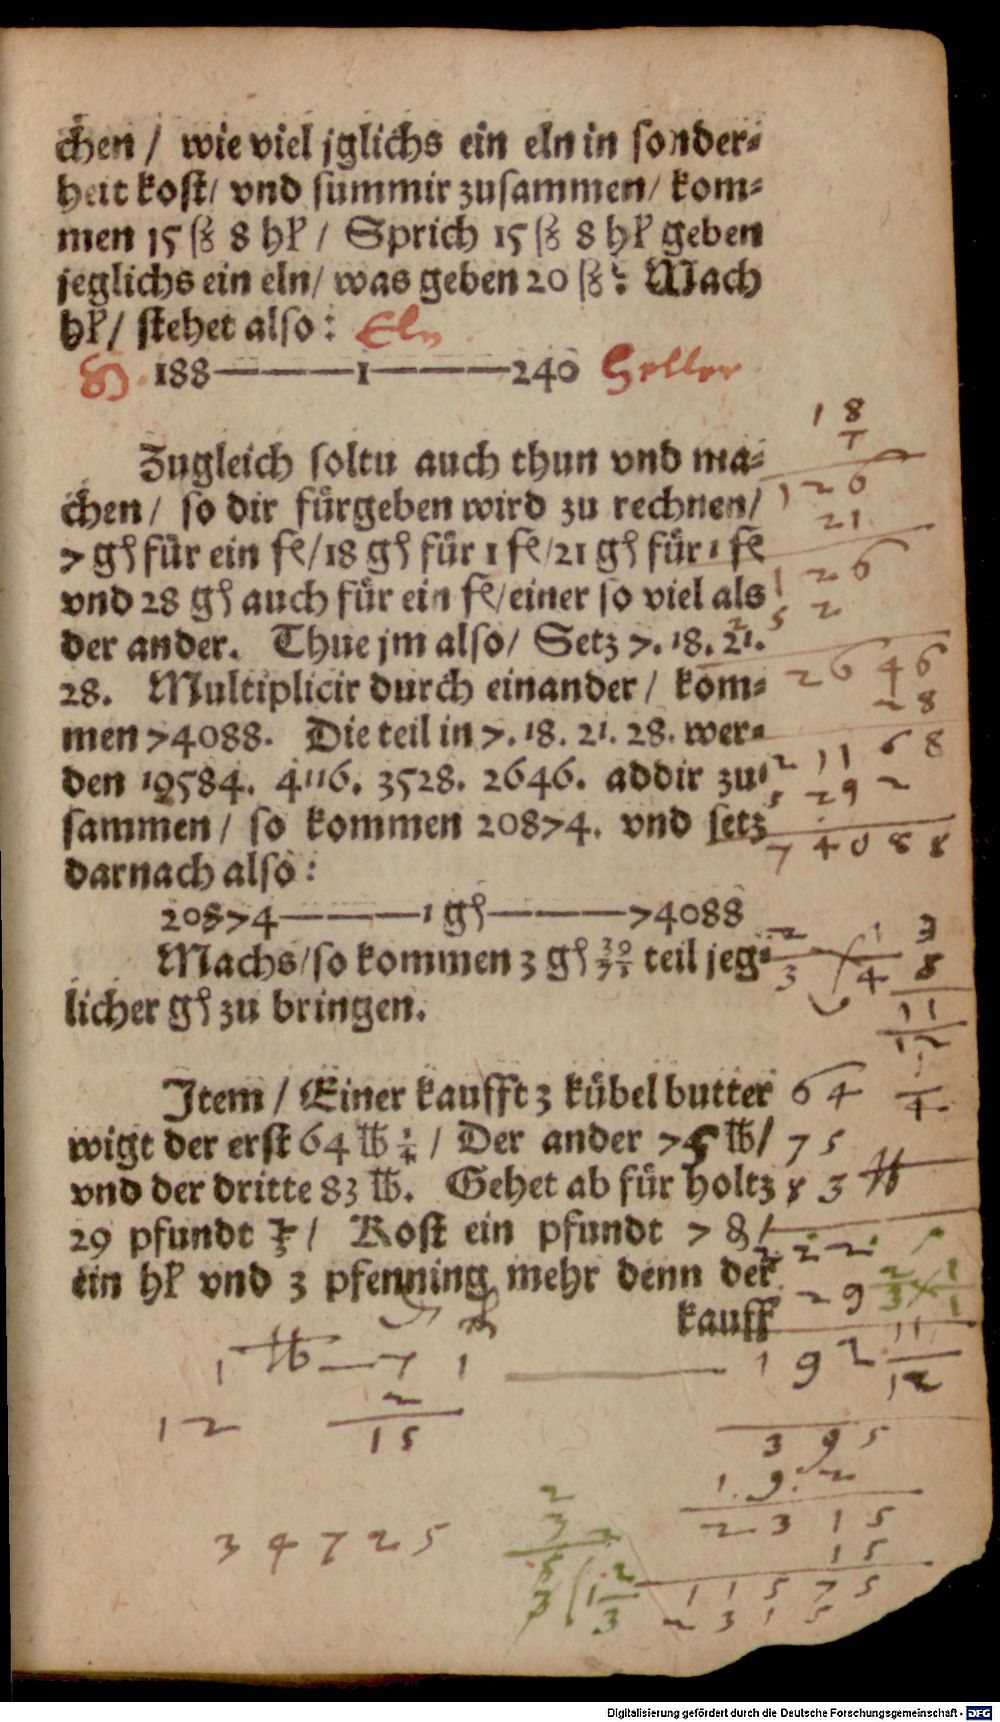 chen / wie viel jglichs ein eln in sonder⸗
heit kost/ vnd summir zusammen/ kom⸗
men 15 ß 8 hl / Sprich 15 ß 8 hl geben
jeglichs ein eln/ was geben 20 ß? Mach
hl/ stehet also: Eln
188———1———240 Heller
Zugleich soltu auch thun vnd ma⸗
chen / so dir fürgeben wird zu rechnen/
7 gß für ein fl/18 gß für 1 fl/21 gß für 1 fl
vnd 28 gß auch für ein fl/einer so viel als
der ander. Thue jm also/ Setz 7. 18. 21.
28. Multiplicir durch einander / kom⸗
men 74088. Die teil in 7. 18. 21. 28. wer⸗
den 10584. 4116. 3528. 2646. addir zu⸗
sammen / so kommen 20874. vnd setz
darnach also:
20874———1 gß———74088
Machs/so kommen 3 gß teil jeg⸗
licher gß zu bringen.
Item / Einer kaufft 3 kübel butter
wigt der erst 64 lb 1/4 / Der ander 75 lb/
vnd der dritte 83 lb. Gehet ab für holtz
29 pfundt / Kost ein pfundt 7 ₰ /
ein hl vnd 3 pfenning mehr denn der
kauff
18
7
126
21
126
252
2646
28
21168
5292
74088
2/3 1/4
3
8
11
12
64 1/4
75
83 lb
222
29 2/3
192 11/12
1 lb — 7 1 ——— 192
12
2
15
395
192
2315
15
11575
2315
34725
2
3 2
5
3 ( 1 2/3
Digitalisierung gefördert durch die Deutsche Forschungsgemeinschaft - DFG